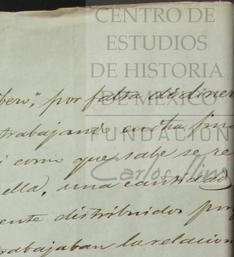 CENTRO DE
ESTUDIOS
DE HISTORIA
DE MÉXICO
FUNDACIÓN
Carlos Slim
por falta de diner
trabajando
como que sabe se re
ella, una cantidad
ente distribuidos
trabajaban la relacion